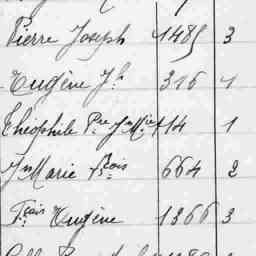 Pierre Joseph 1485 3
Eugène Jh 316 1
Théophile Pre Jn Mie 114 1
Jn Marie Frois 664 2
Fçois Eugène 1366 3